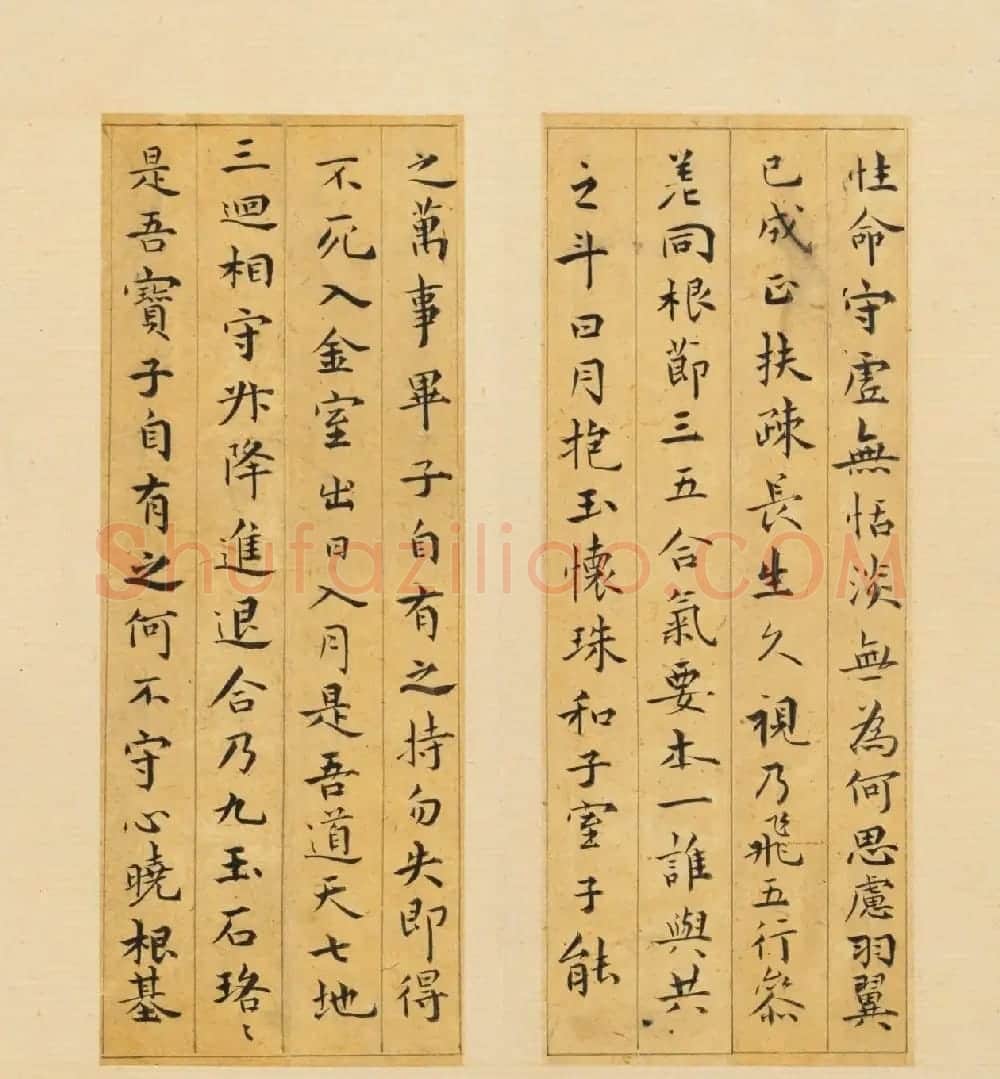 性命守虛無恬淡無為何思慮羽翼
已成正扶疎長生久視乃飛五行參
差同根節三五合氣要本一誰與共
之斗日月抱玉懷珠和子室子能
之萬事畢子自有之持勿失即得
不死入金室出日入月是吾道天七地
三迴相守升降進退合乃九玉石珞〻
是吾寶子自有之何不守心曉根基
Shufaziliao.COM